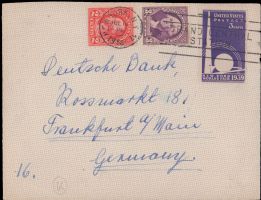 UNITED STATES
POSTAGE
1939
Deutsche Bank,
Rossmarkt 18,
Frankfurt a/Main
Germany.
16.